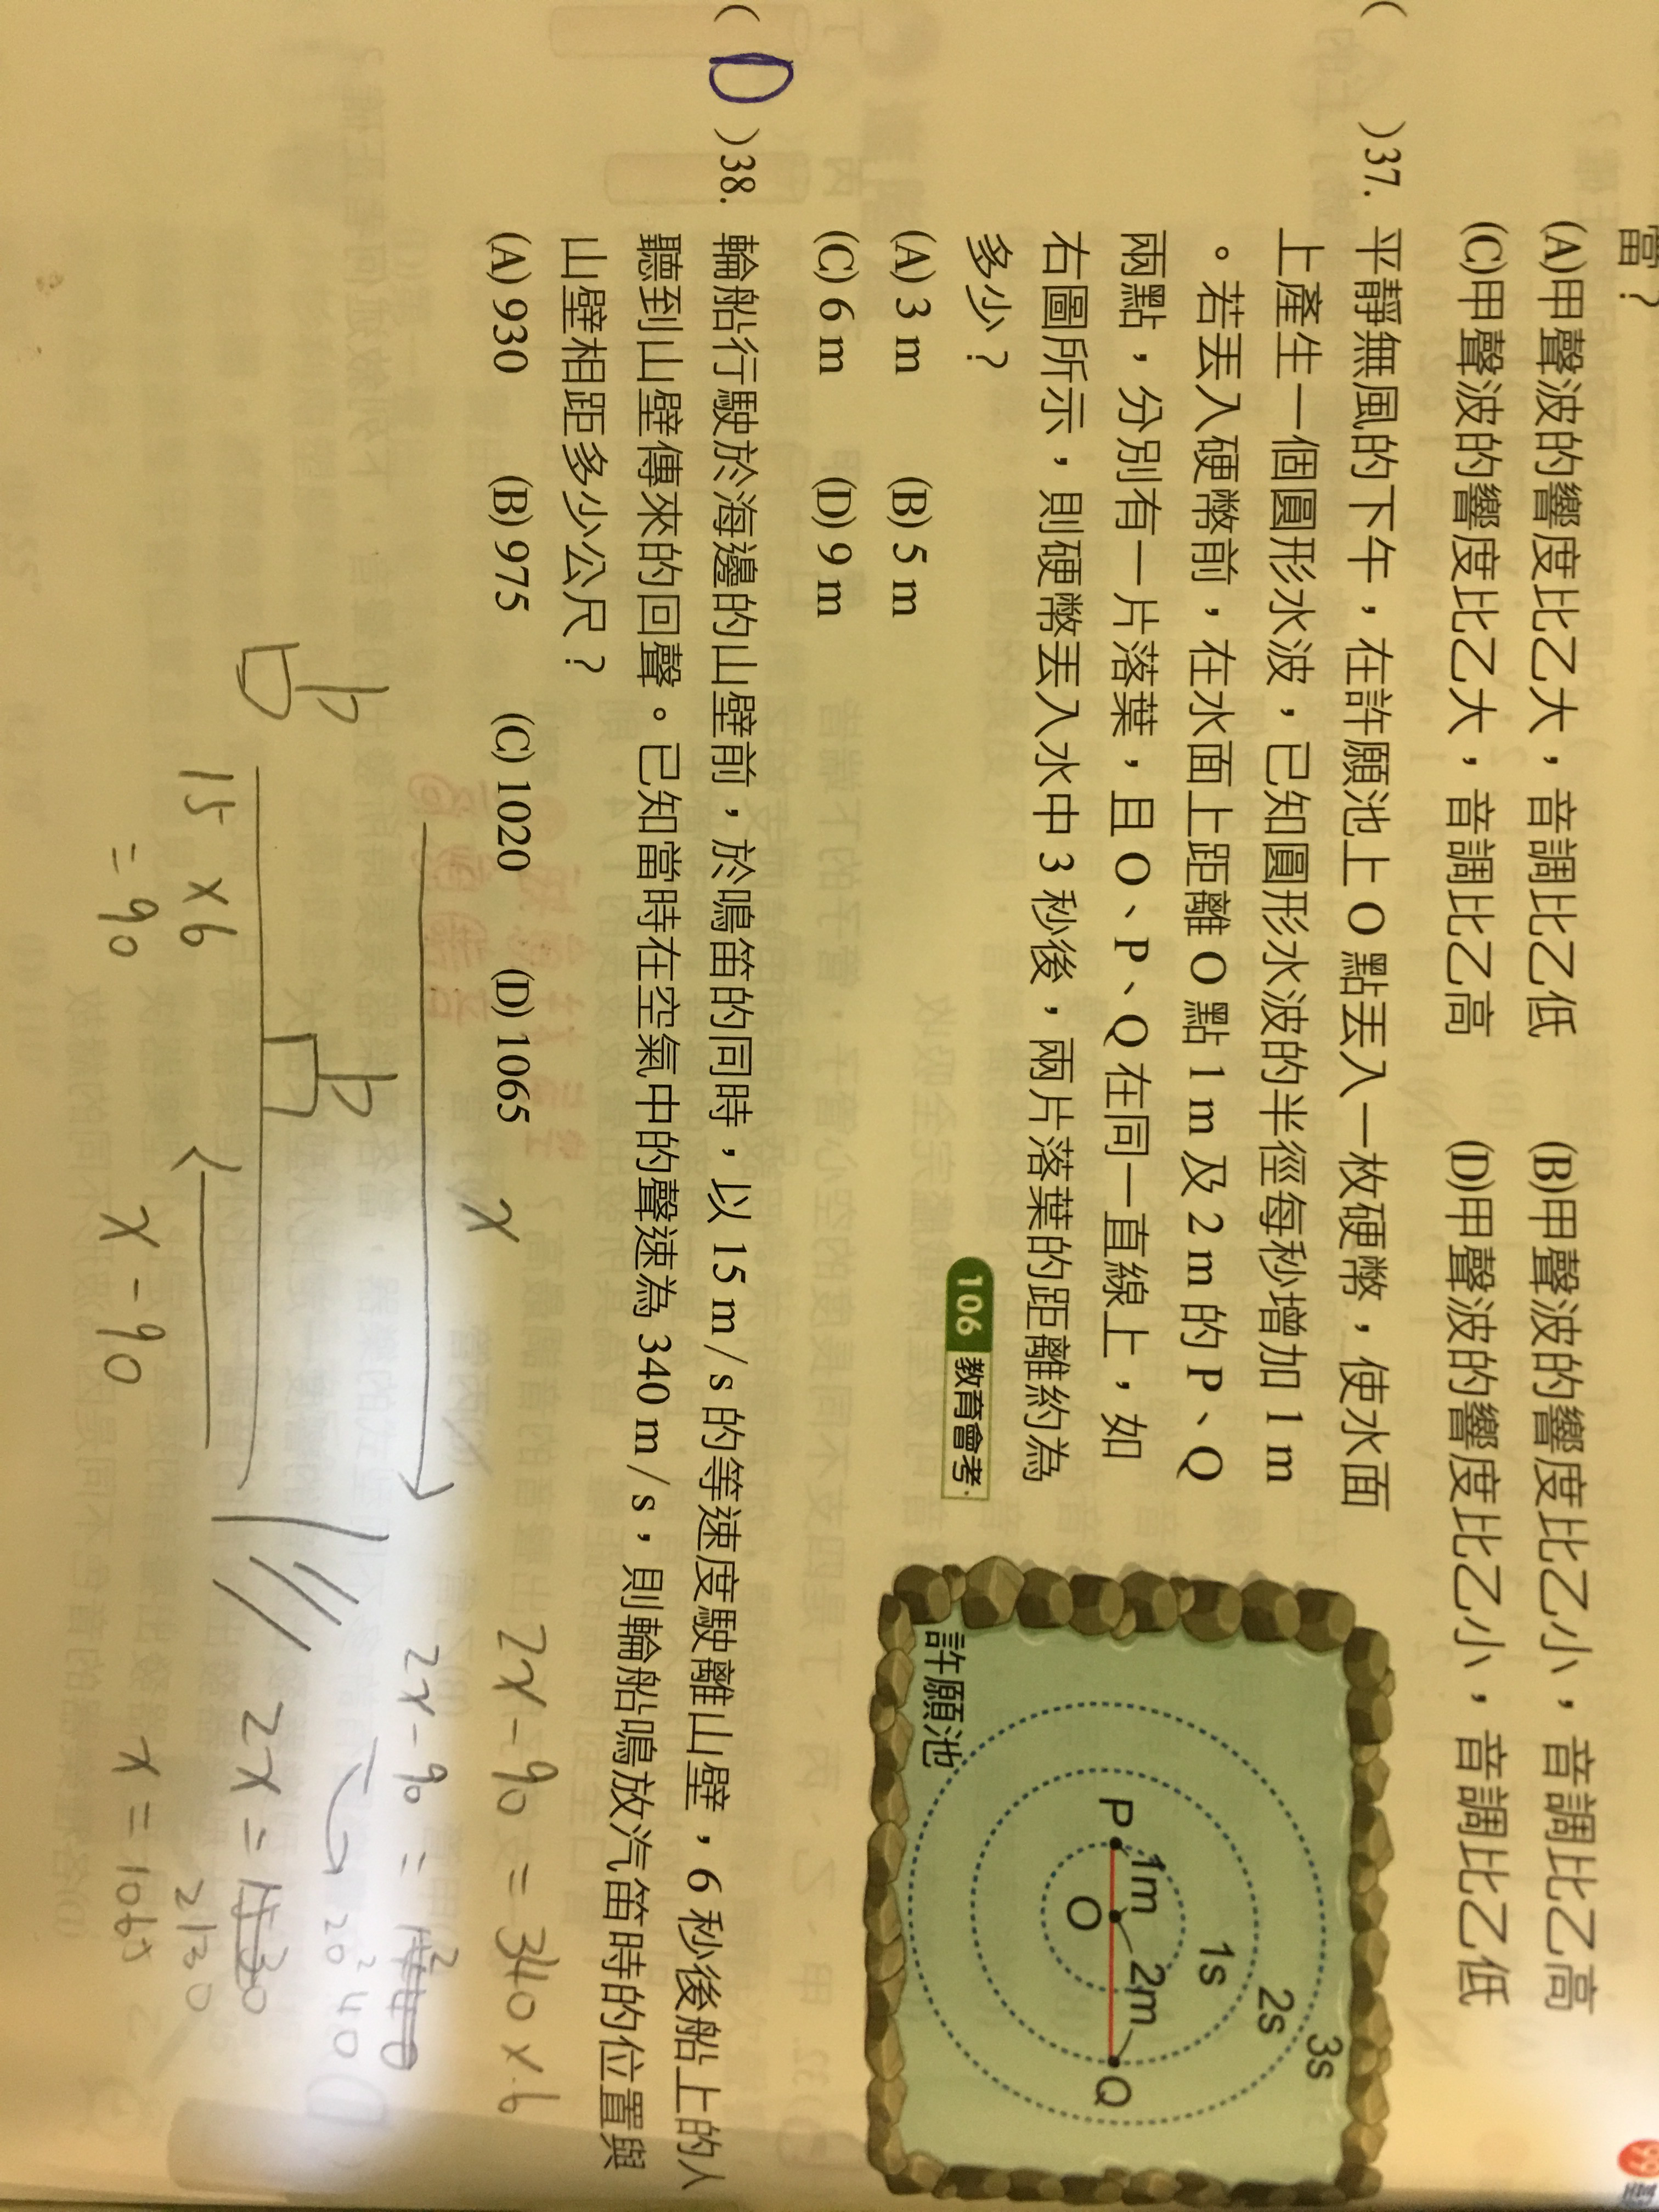 當？
(A)甲聲波的響度比乙大，音調比乙低 (B)甲聲波的響度比乙小，音調比乙高
(C)甲聲波的響度比乙大，音調比乙高 (D)甲聲波的響度比乙小，音調比乙低
( )37. 平靜無風的下午，在許願池上 O 點丟入一枚硬幣，使水面
上產生一個圓形水波，已知圓形水波的半徑每秒增加 1 m
。若丟入硬幣前，在水面上距離 O 點 1 m 及 2 m 的 P、Q
兩點，分別有一片落葉，且 O、P、Q 在同一直線上，如
右圖所示，則硬幣丟入水中 3 秒後，兩片落葉的距離約為
多少？ 106 教育會考
(A) 3 m (B) 5 m
(C) 6 m (D) 9 m
3s
2s
1s
1m 2m
P O Q
許願池
( D )38. 輪船行駛於海邊的山壁前，於鳴笛的同時，以 15 m / s 的等速度駛離山壁，6 秒後船上的人
聽到山壁傳來的回聲。已知當時在空氣中的聲速為 340 m / s，則輪船鳴放汽笛時的位置與
山壁相距多少公尺？
(A) 930 (B) 975 (C) 1020 (D) 1065
x
2x - 90 = 340 x 6
2x - 90 =
2040
15 x 6
= 90
x - 90
2x =
2130
x = 1065